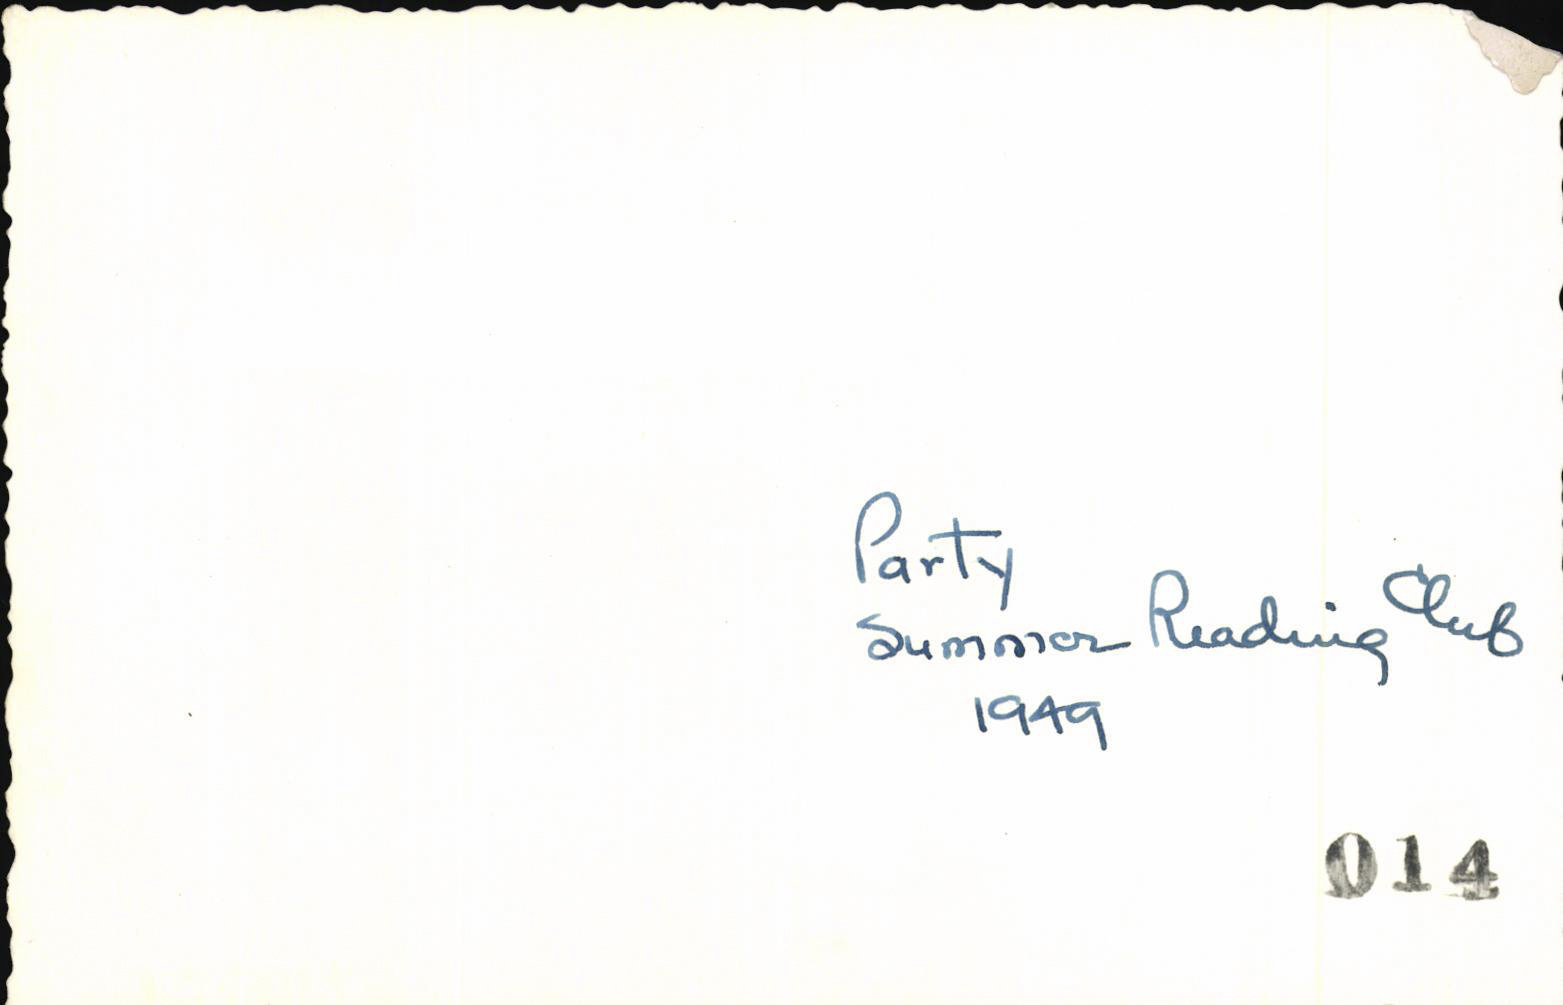 Party
Summer Reading Club
1949
014